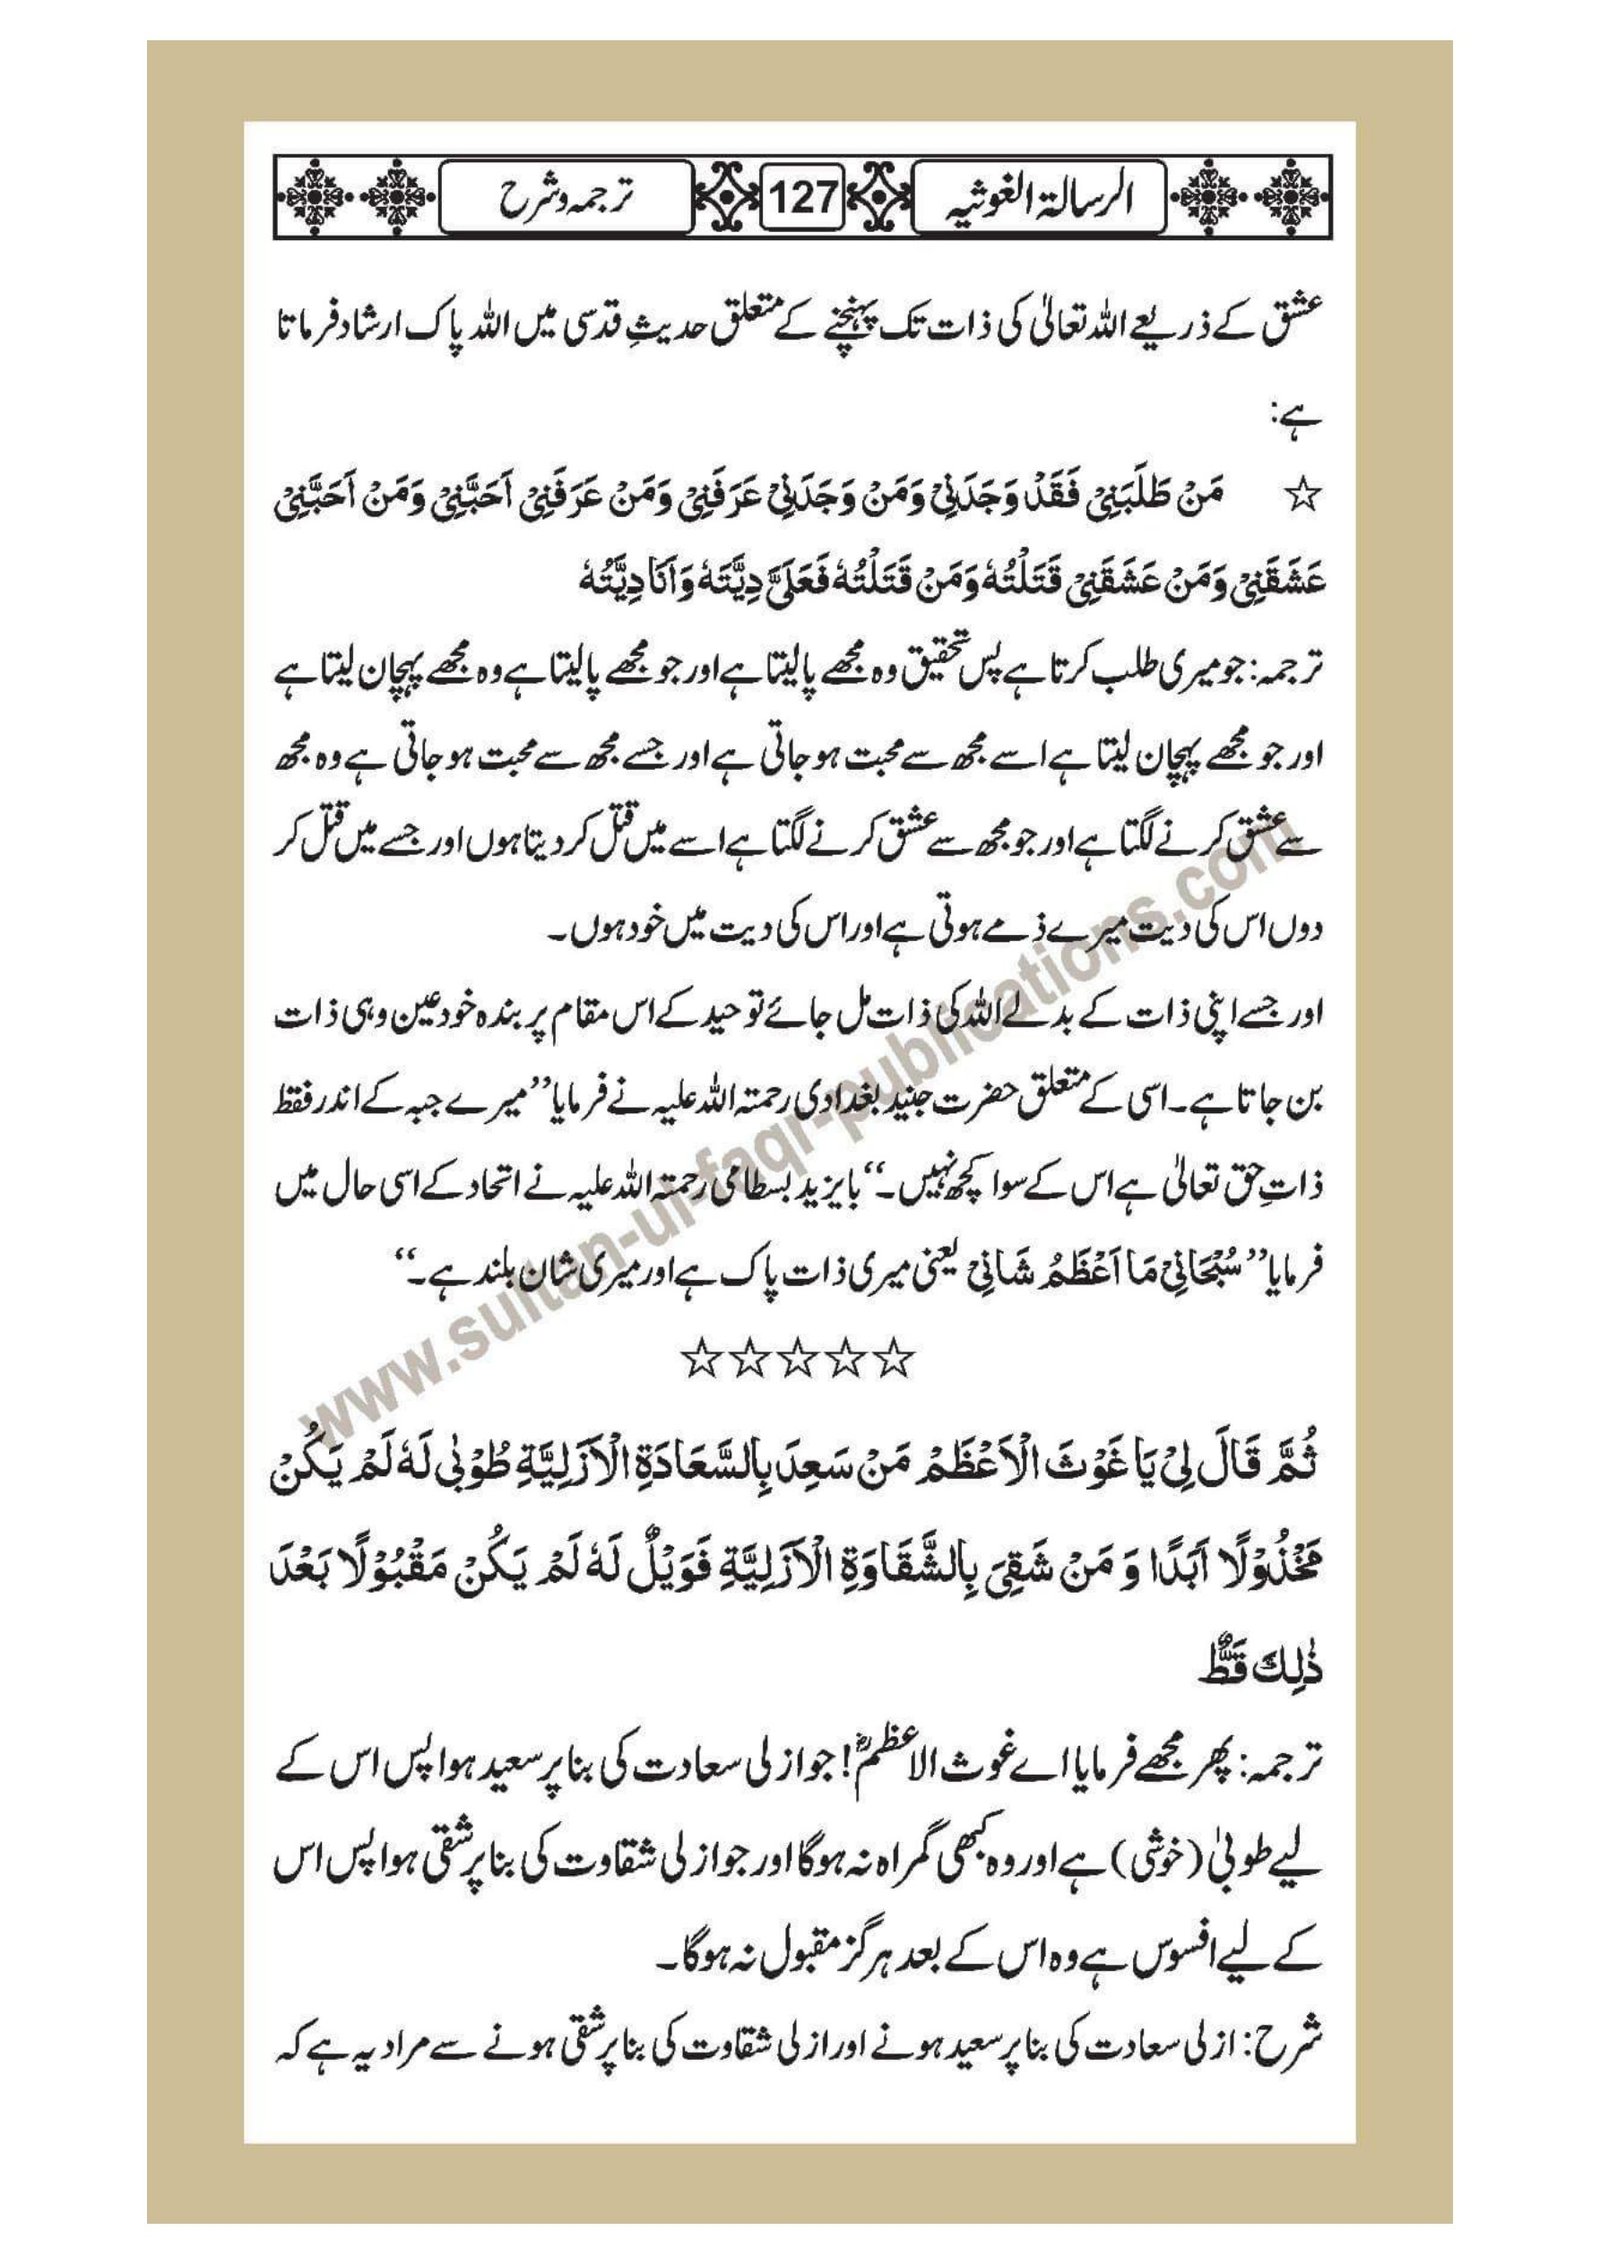 الرسالۃ الغوثیہ 127 ترجمہ و شرح
عشق کے ذریعے اللہ تعالیٰ کی ذات تک پہنچنے کے متعلق حدیثِ قدسی میں اللہ پاک ارشاد فرماتا
ہے:
☆ مَنْ طَلَبَنِیْ فَقَدْ وَجَدَنِیْ وَمَنْ وَجَدَنِیْ عَرَفَنِیْ وَمَنْ عَرَفَنِیْ اَحَبَّنِیْ وَمَنْ اَحَبَّنِیْ
عَشَقَنِیْ وَمَنْ عَشَقَنِیْ قَتَلْتُہٗ وَمَنْ قَتَلْتُہٗ فَعَلَیَّ دِیَّتَہٗ وَاَنَا دِیَّتُہٗ
ترجمہ: جو میری طلب کرتا ہے پس تحقیق وہ مجھے پا لیتا ہے اور جو مجھے پا لیتا ہے وہ مجھے پہچان لیتا ہے
اور جو مجھے پہچان لیتا ہے اسے مجھ سے محبت ہو جاتی ہے اور جسے مجھ سے محبت ہو جاتی ہے وہ مجھ
سے عشق کرنے لگتا ہے اور جو مجھ سے عشق کرنے لگتا ہے اسے میں قتل کر دیتا ہوں اور جسے میں قتل کر
دوں اس کی دیت میرے ذمے ہوتی ہے اور اس کی دیت میں خود ہوں۔
اور جسے اپنی ذات کے بدلے اللہ کی ذات مل جائے توحید کے اس مقام پر بندہ خود عین وہی ذات
بن جاتا ہے۔ اسی کے متعلق حضرت جنید بغدادی رحمتہ اللہ علیہ نے فرمایا ”میرے جبہ کے اندر فقط
ذاتِ حق تعالیٰ ہے اس کے سوا کچھ نہیں۔“ بایزید بسطامی رحمتہ اللہ علیہ نے اتحاد کے اسی حال میں
فرمایا ”سُبْحَانِیْ مَا اَعْظَمُ شَانِیْ یعنی میری ذات پاک ہے اور میری شان بلند ہے۔“
☆☆☆☆☆
ثُمَّ قَالَ لِیْ یَا غَوْثَ الْاَعْظَمْ مَنْ سَعِدَ بِالسَّعَادَۃِ الْاَزَلِیَّۃِ طُوْبٰی لَہٗ لَمْ یَکُنْ
مَخْذُوْلًا اَبَدًا وَ مَنْ شَقِیَ بِالشَّقَاوَۃِ الْاَزَلِیَّۃِ فَوَیْلٌ لَہٗ لَمْ یَکُنْ مَقْبُوْلًا بَعْدَ
ذٰلِکَ قَطٌّ
ترجمہ: پھر مجھے فرمایا اے غوث الاعظمؓ! جو ازلی سعادت کی بنا پر سعید ہوا پس اس کے
لیے طوبیٰ (خوشی) ہے اور وہ کبھی گمراہ نہ ہوگا اور جو ازلی شقاوت کی بنا پر شقی ہوا پس اس
کے لیے افسوس ہے وہ اس کے بعد ہرگز مقبول نہ ہوگا۔
شرح: ازلی سعادت کی بنا پر سعید ہونے اور ازلی شقاوت کی بنا پر شقی ہونے سے مراد یہ ہے کہ
www.sultan-ul-faqr-publications.com